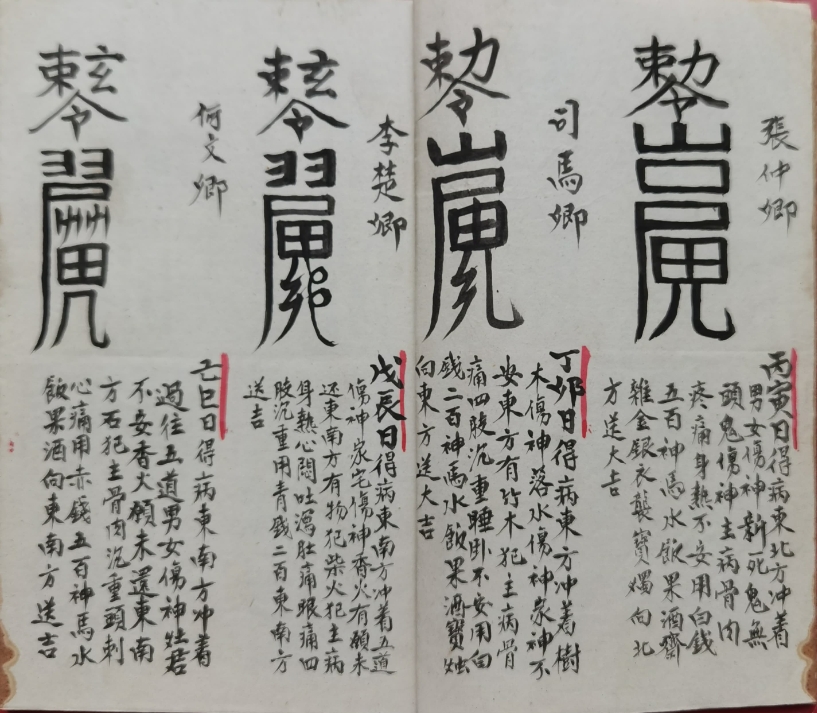 張仲卿
丙寅日得病東北方冲着
男女傷神新死鬼無
頭鬼傷神主病骨肉
疼痛身熱不安用白錢
五百神馬水飲果酒齋
雜金銀衣襲寶燭向北
方送大吉
司馬卿
丁卯日得病東方冲着樹
木傷神落水傷神家神不
安東方有竹木犯主病骨
痛四肢沉重睡卧不安用白
錢二百神馬水飯果酒寶燭
向東方送大吉
李楚卿
戊辰日得病東南方冲着五道
傷神家宅傷神香火有願未
还東南方有物犯柴火犯主病
身熱心悶吐瀉肚痛眼痛四
肢沉重用青錢二百東南方
送吉
何文卿
己巳日得病東南方冲着
過往五道男女傷神灶君
不安香火願未還東南
方石犯主骨肉沉重頭刺
心痛用赤錢五百神馬水
飲果酒向東南方送吉